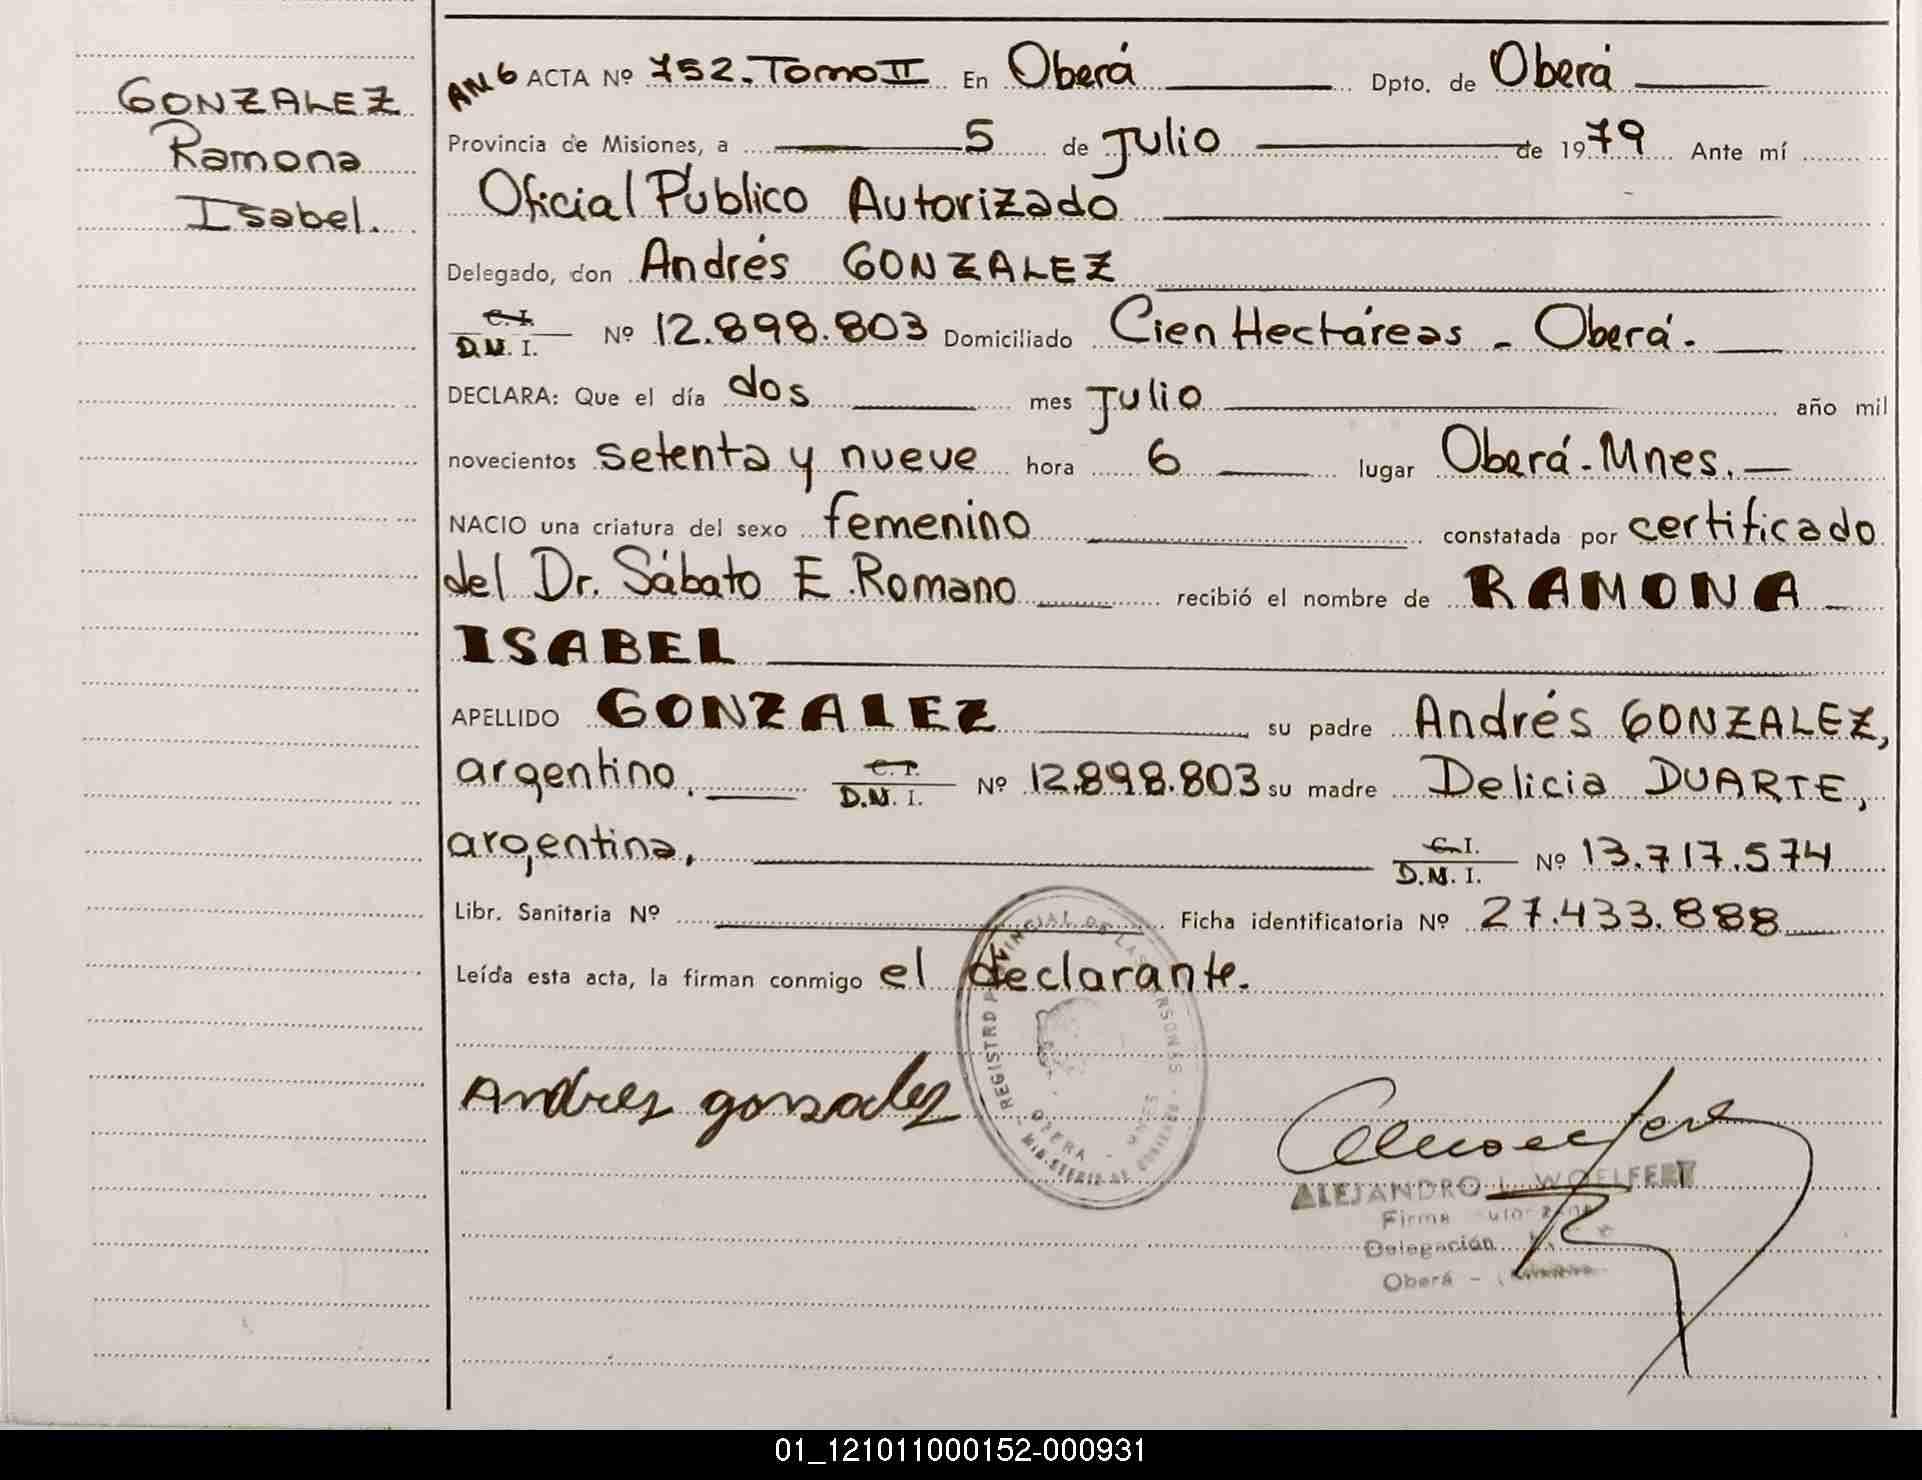 GONZALEZ
Ramona
Isabel.
ACTA Nº 752. Tomo II En Oberá Dpto. de Oberá
Provincia de Misiones, a 5 de Julio de 1979 Ante mí
Oficial Público Autorizado
Delegado, don Andrés GONZALEZ
C. I.
D.N. I. Nº 12.898.803 Domiciliado Cien Hectáreas - Oberá.
DECLARA: Que el día dos mes Julio año mil
novecientos setenta y nueve hora 6 lugar Oberá - Mnes.
NACIO una criatura del sexo femenino constatada por certificado
del Dr. Sábato E. Romano recibió el nombre de RAMONA
ISABEL
APELLIDO GONZALEZ su padre Andrés GONZALEZ,
argentino, C. I.
D.N. I. Nº 12.898.803 su madre Delicia DUARTE,
argentina, C. I.
D.N. I. Nº 13.717.574
Libr. Sanitaria Nº Ficha identificatoria Nº 27.433.888
Leída esta acta, la firman conmigo el declarante.
REGISTRO PROVINCIAL DE LAS PERSONAS
OBERA - MNES
MINISTERIO DE GOBIERNO
Andres gonzalez
ALEJANDRO L. WOELFERT
Firma
Delegación
Oberá -
01_121011000152-000931